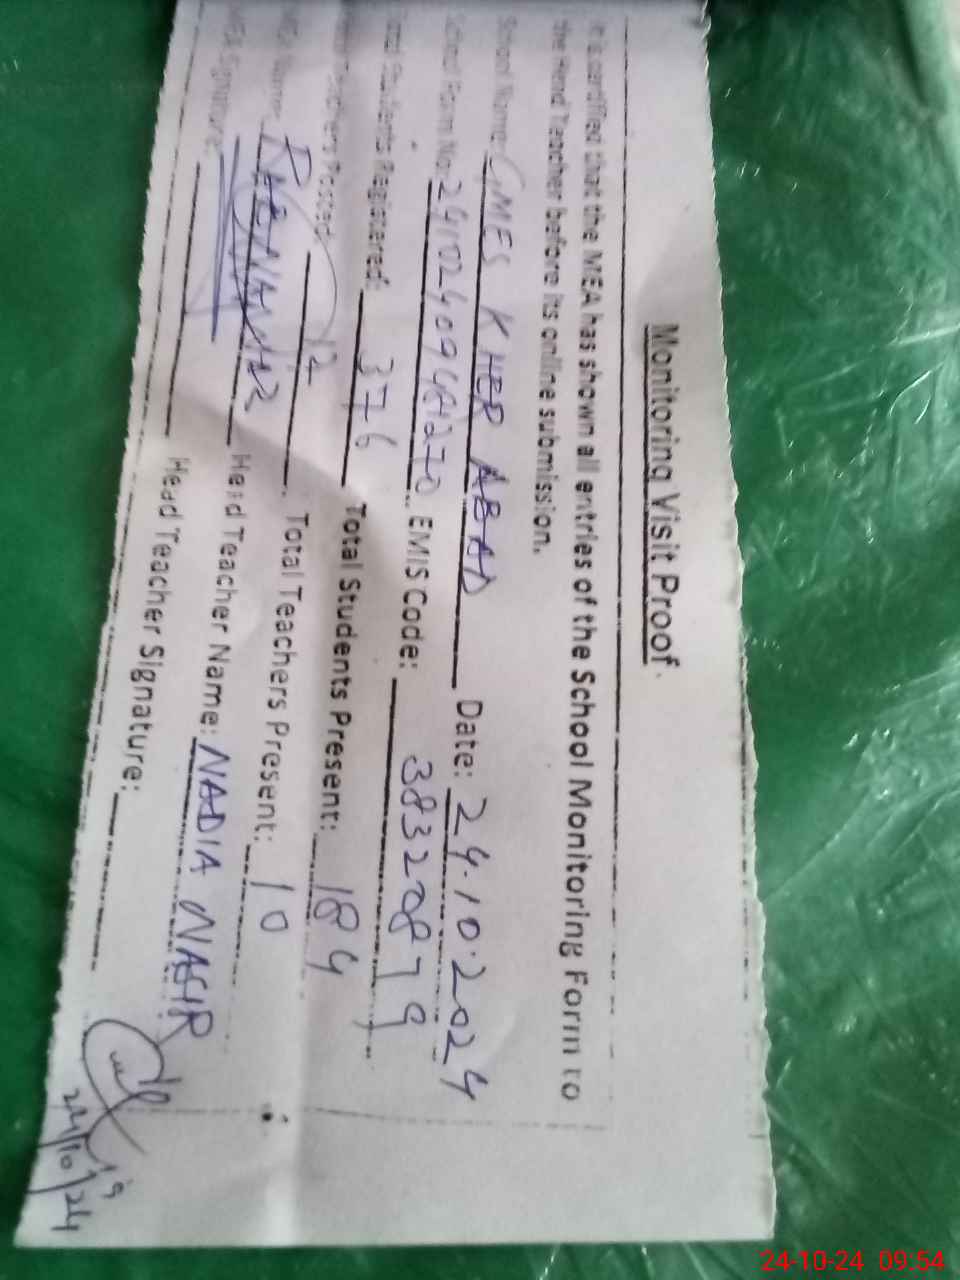 Monitoring Visit Proof.
It is certified that the MEA has shown all entries of the School Monitoring Form to
the Head Teacher before its online submission.
School Name: GMES KHER ABAD Date: 24.10.2024
School Form No: EMIS Code: 38320879
Total Students Registered: 376 Total Students Present: 184
Total Teachers Posted: 12 Total Teachers Present: 10
MEA Name: Head Teacher Name: NADIA NASIR
MEA Signature: Head Teacher Signature:
24/10/24
24-10-24 09:54